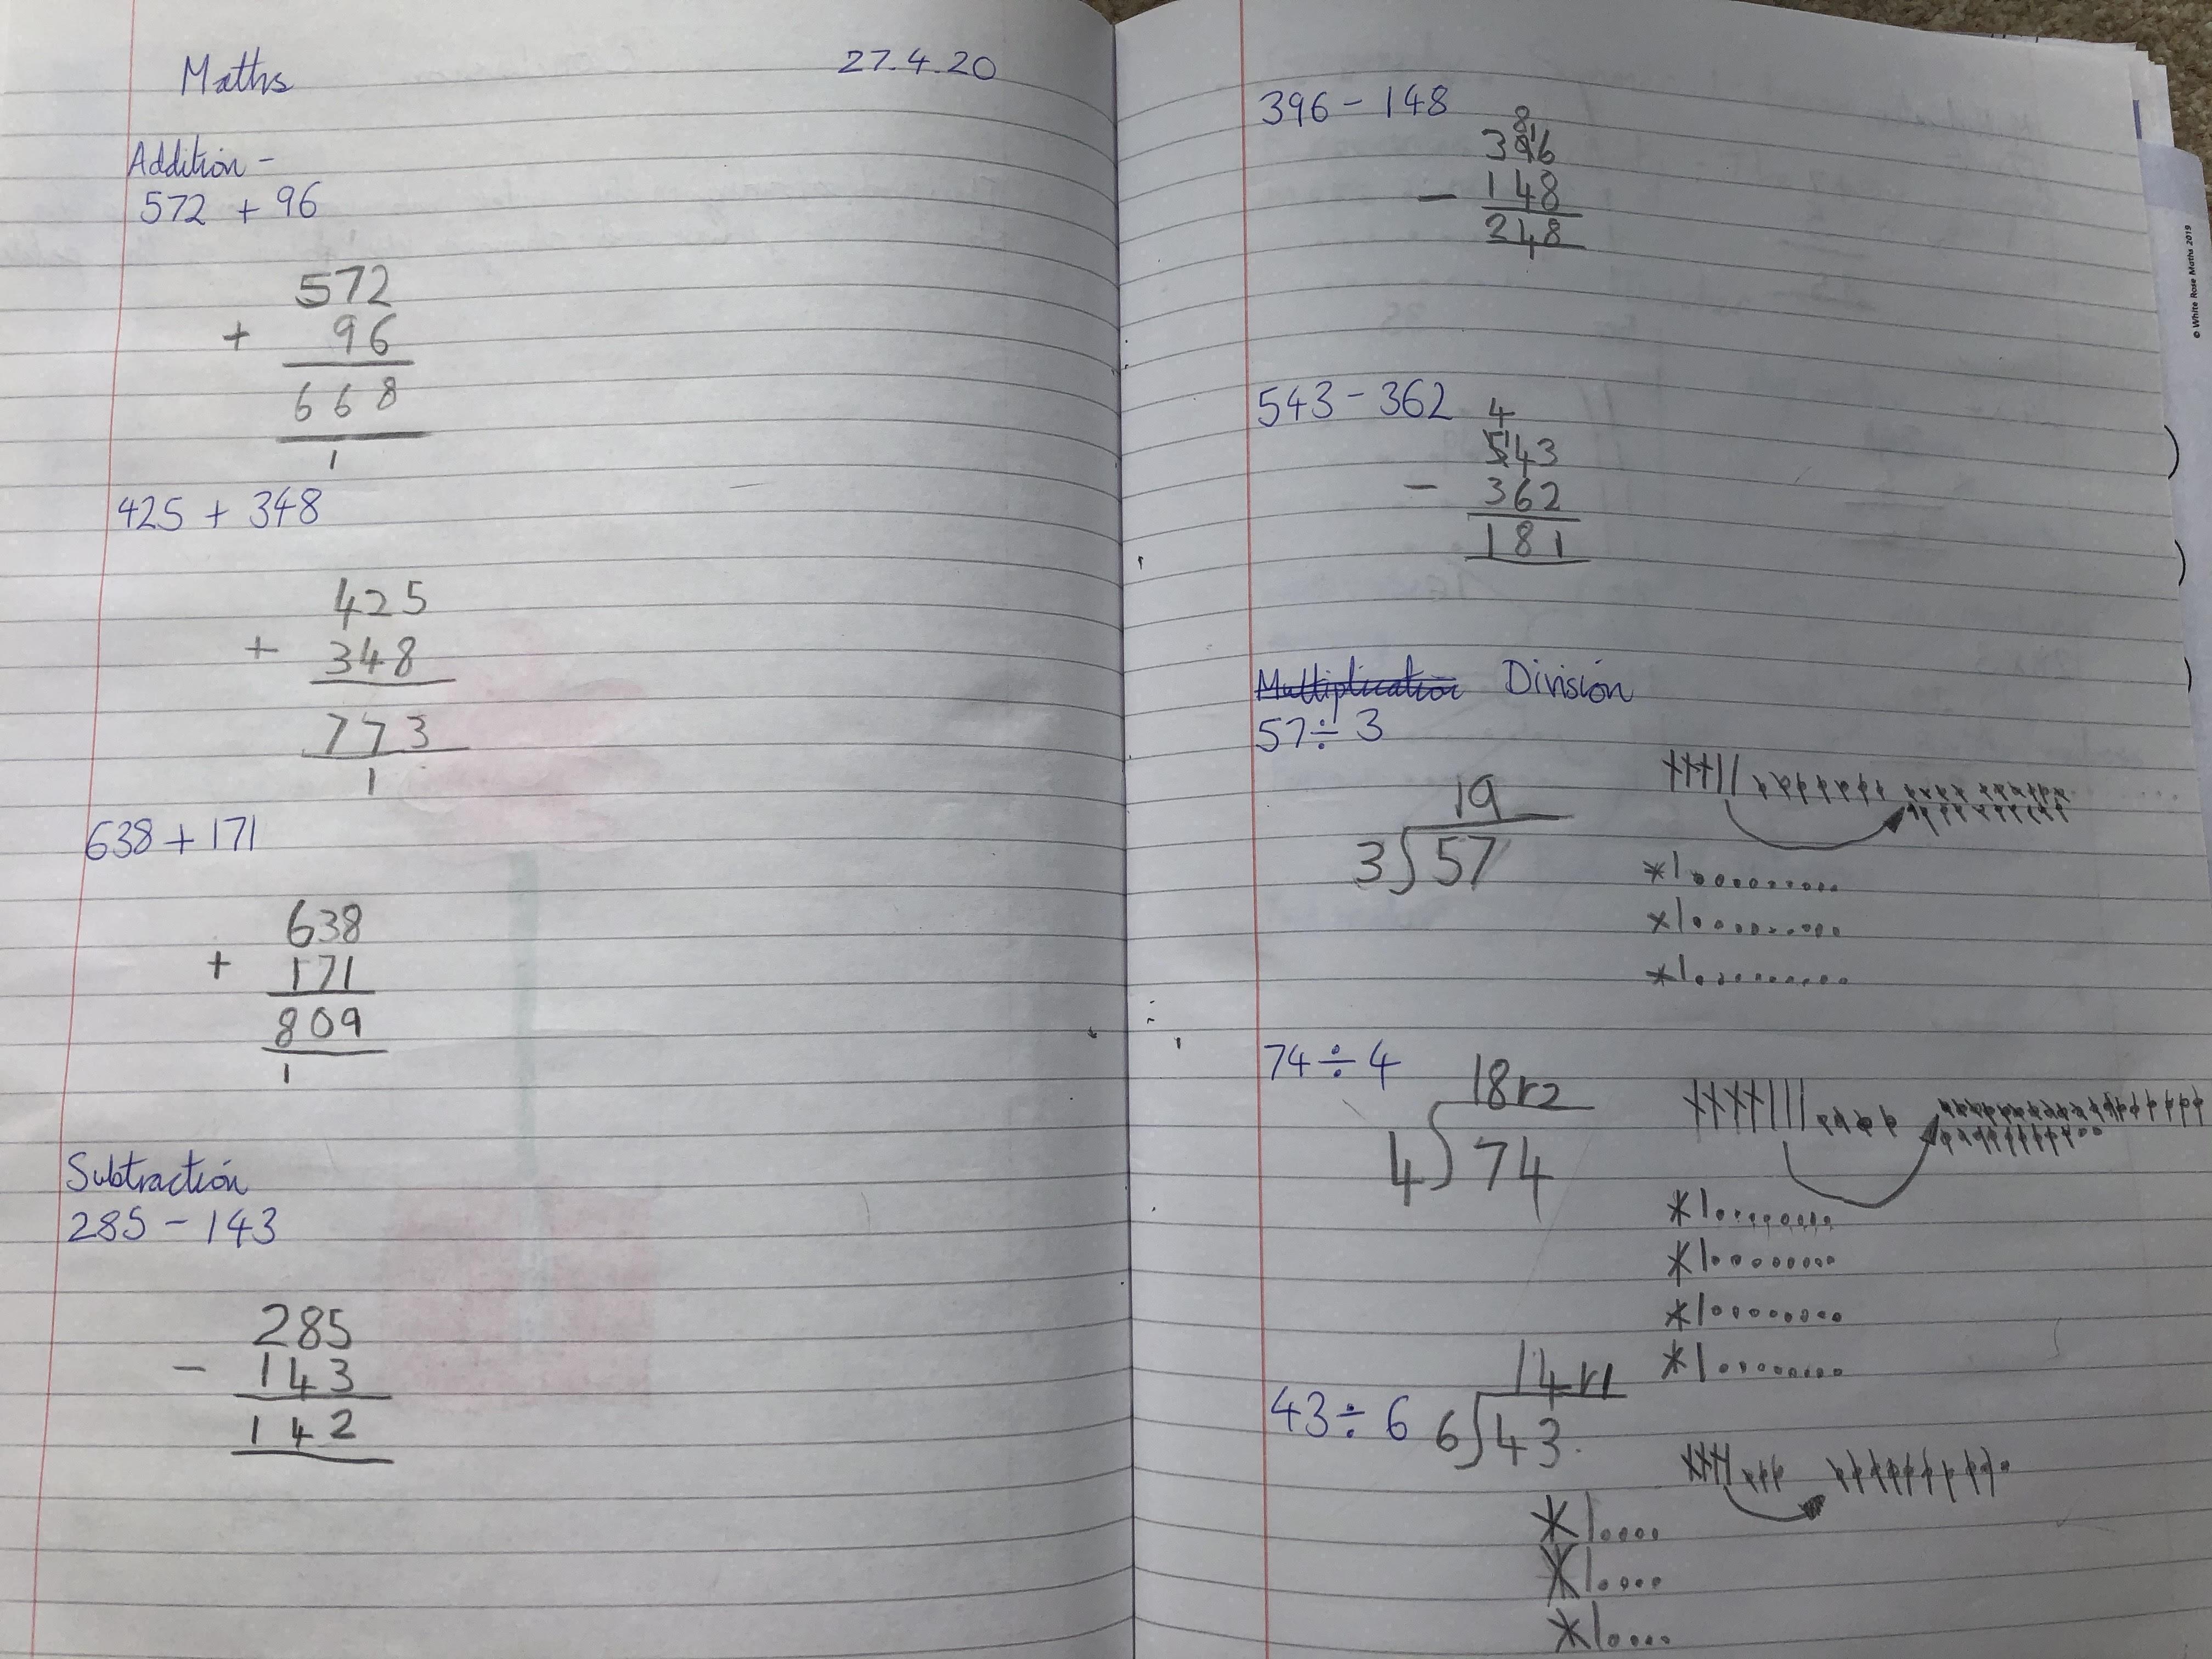 Maths 27.4.20
Addition -
572 + 96
572
+ 96
668
1
425 + 348
425
+ 348
773
1
638 + 171
638
+ 171
809
1
Subtraction
285 - 143
285
- 143
142
396 - 148
8
39 16
- 148
248
543 - 362
4
5 143
- 362
181
Multiplication Division
57 ÷ 3
19
3 57
74 ÷ 4
18r2
4 74
43 ÷ 6
14r1
6 43
© White Rose Maths 2019